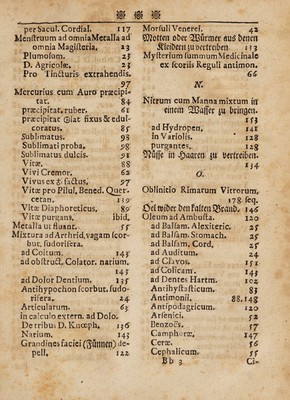 per Sacul. Cordial. 117
Menstruum ad omnia Metalla ad
omnia Magisteria. 23
Plumosum. 23
D. Agricolæ. 25
Pro Tincturis extrahendis.
97
Mercurius cum Auro præcipi-
tat. 84
præcipitat. ruber. 61
præcipitat ☉lat fixus & edul-
coratus. 85
Sublimatus. 93
Sublimati proba, 98
Sublimatus dulcis. 91
Vitæ, 88
Vivi Cremor. 62
Vivus ex ♁ factus, 97
Vitæ pro Pilul, Bened. Quer-
cetan. 139
Vitæ Diaphoreticus. 89
Vitæ purgans. ibid.
Metalla ut fluant. 55
Mixtura ad Arthrid. vagam scor-
but, sudorifera.
ad Coitum. 143
ad obstruct. Colator. narium.
143
ad Dolor Dentium. 135
Antihypochon scorbut. sudo-
rifera. 24
Articularum. 63
in calculo extern. ad Dolo.
De tribus D. Knœph. 136
Narium. 143
Grandines faciei (Finnen) de-
pell. 122
Morsuli Venerei. 42
Motten oder Würmer aus denen
Kleidern zu vertreiben. 113
Mysterium summum Medicinale
ex scoriis Reguli antimon.
66
N.
Nitrum cum Manna mixtum in
einem Wasser zu bringen.
153
ad Hydropen, 141
in Variolis. 128
purgantes. 128
Nüsse in Haaren zu vertreiben.
134
O.
Oblinitio Rimatum Vitrorum,
178 seq.
Oel wider den kalten Brand. 146
Oleum ad Ambusta. 120
ad Balsam. Alexiteric. 25
ad Balsam. Stomach. 25
ad Balsam, Cord, 25
ad Auditum. 24
ad Clavos. 151
ad Colicam. 143
ad Dentes Hartm. 102
Antihystasticum. 83
Antimonii. 88. 148
Antipodagricum. 120
Arsenici. 52
Benzoës. 57
Camphoræ. 147
Ceræ. 56
Cephalicum. 55
Bb 3 Ci-